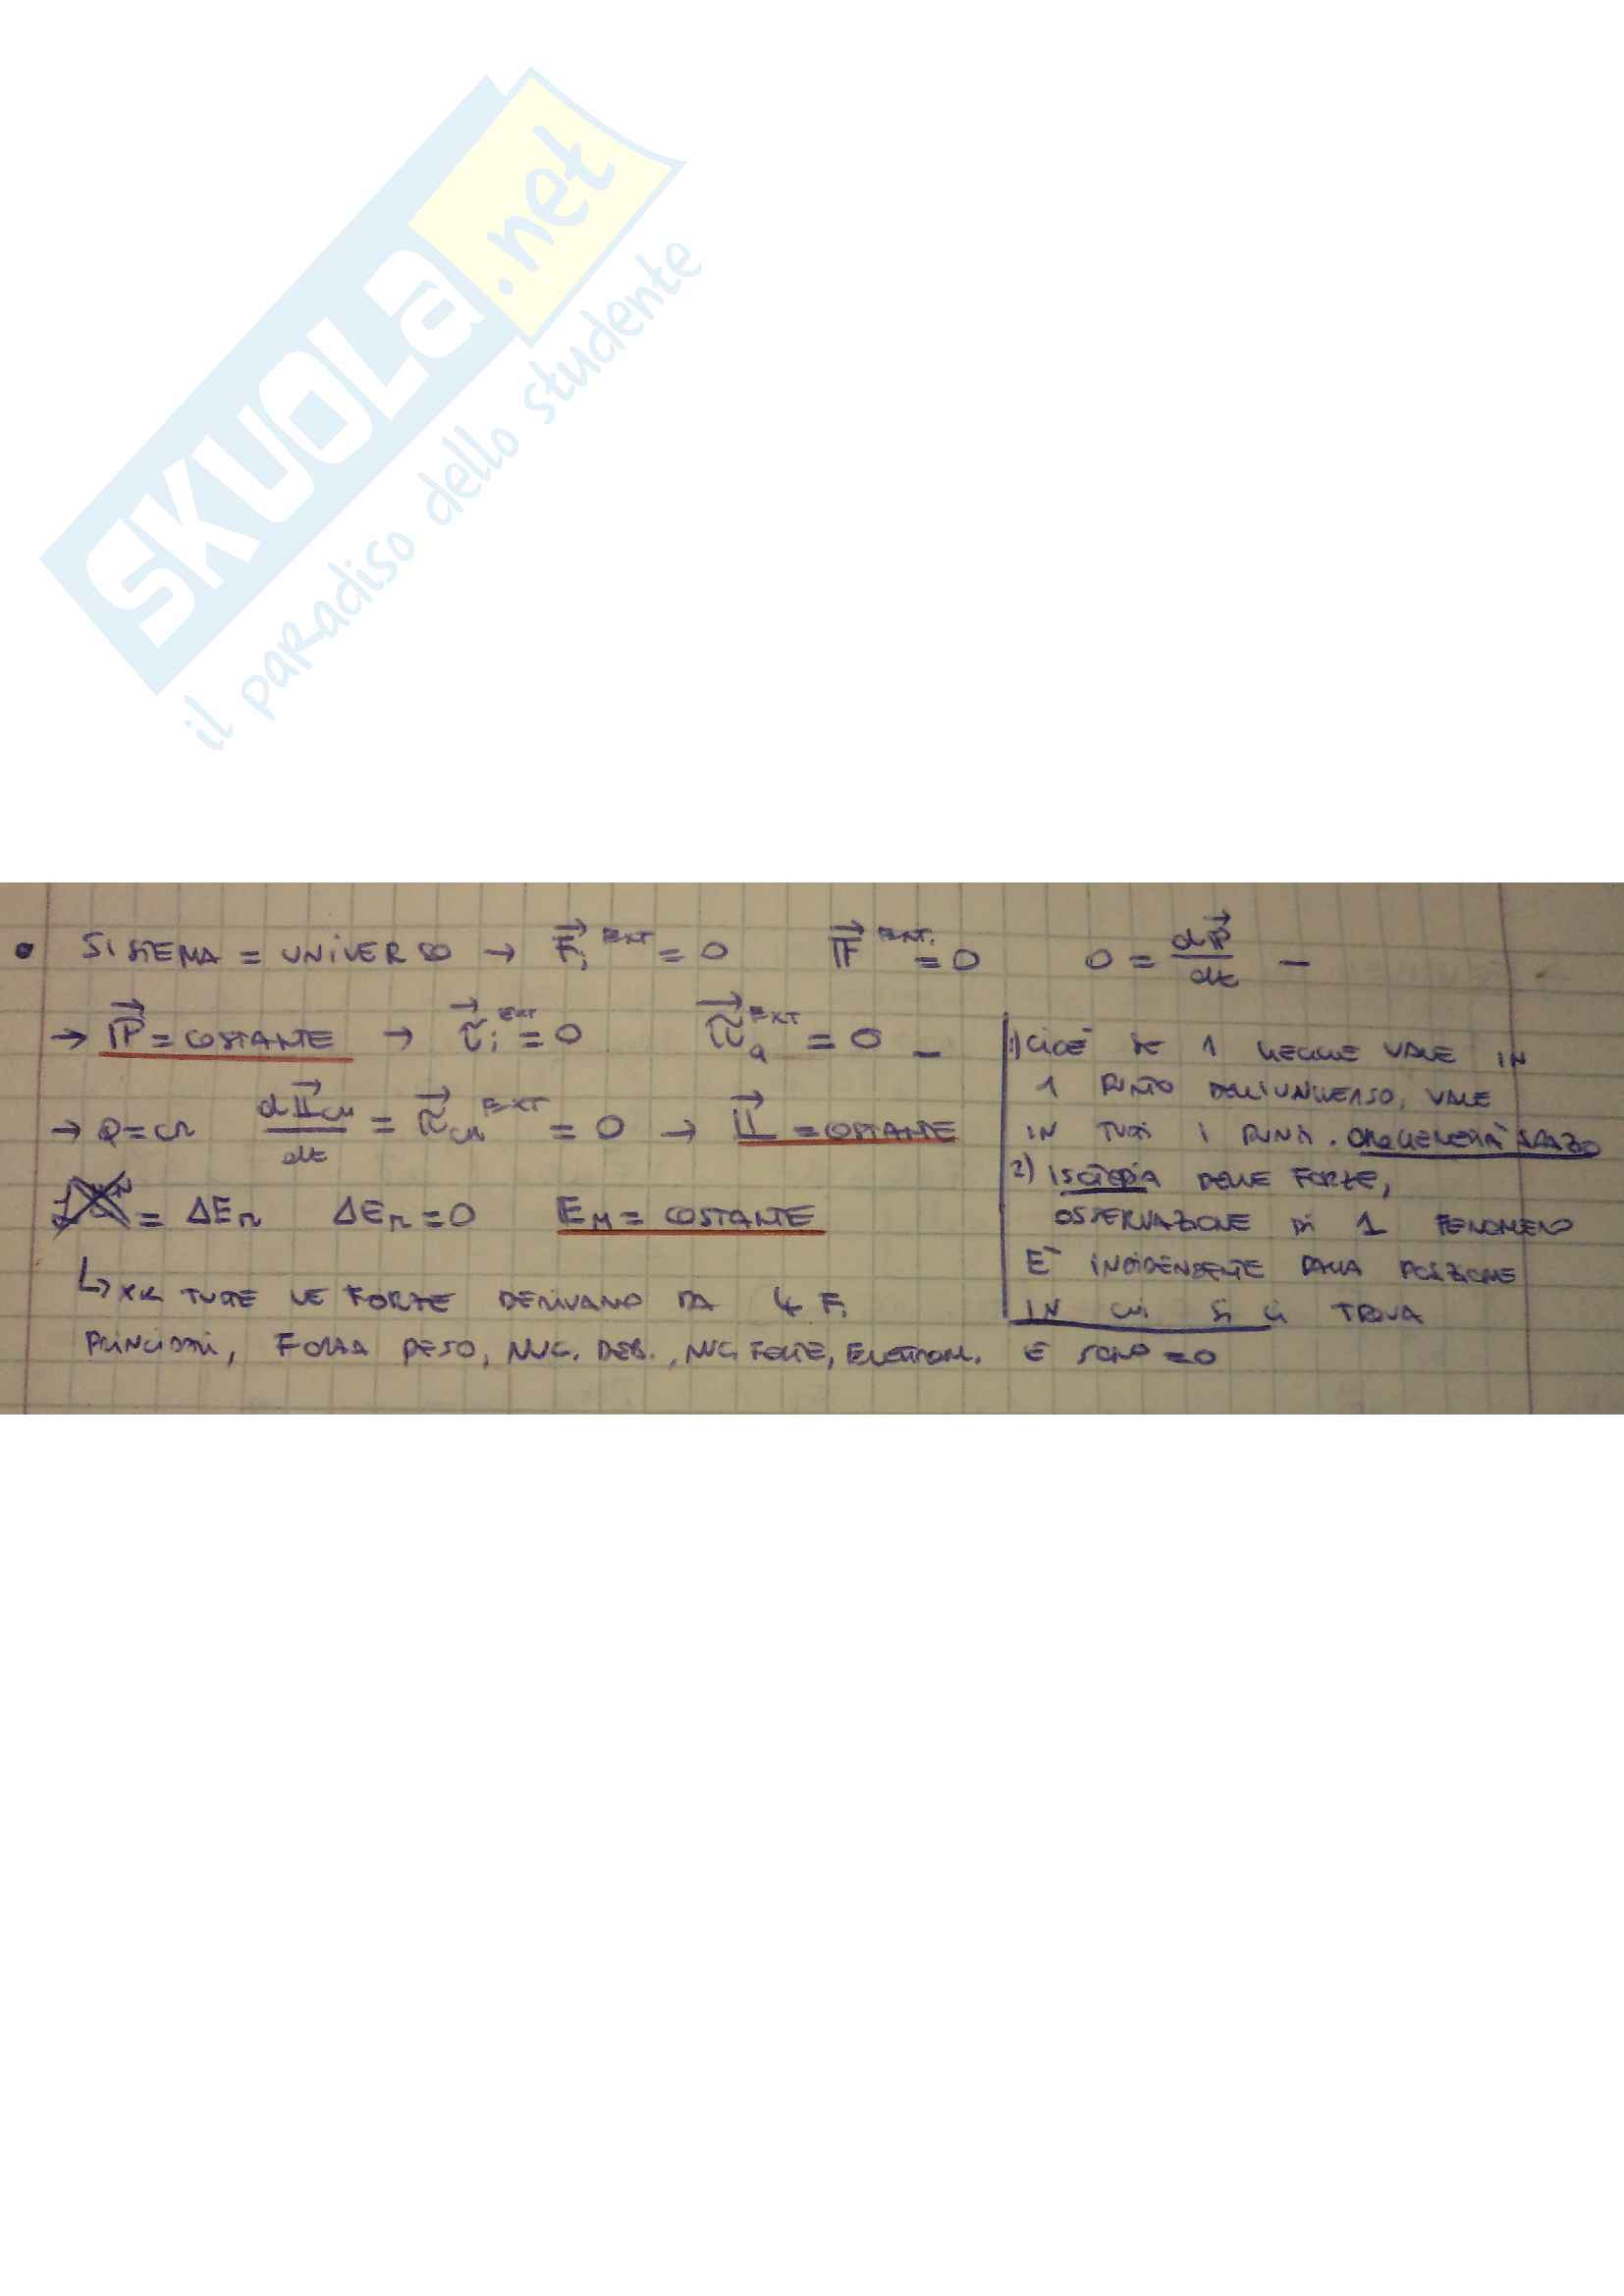 SKUOLA.net
il paradiso dello studente
• SISTEMA = UNIVERSO → F⃗ᵢ ᴱˣᵀ = 0 𝔽⃗ ᴱˣᵀ = 0 0 = dℙ⃗/dt –
→ ℙ⃗ = COSTANTE → τ⃗ᵢ ᴱˣᵀ = 0 τ⃗ ᴱˣᵀ = 0 –
→ Q = CM d𝕃⃗CM/dt = τ⃗CM ᴱˣᵀ = 0 → 𝕃⃗ = COSTANTE
= ΔEM ΔEM = 0 EM = COSTANTE
↳ XK TUTTE LE FORZE DERIVANO DA 4 F.
PRINCIPALI, FORZA PESO, NUC. DEB., NUC. FORTE, ELETTROM. E SONO = 0
1) CIOÈ SE 1 LEGGE VALE IN
1 PUNTO DELL'UNIVERSO, VALE
IN TUTTI I PUNTI. OMOGENEITÀ SPAZIO
2) ISOTROPIA DELLE FORZE,
OSSERVAZIONE DI 1 FENOMENO
È INDIPENDENTE DALLA POSIZIONE
IN CUI SI CI TROVA